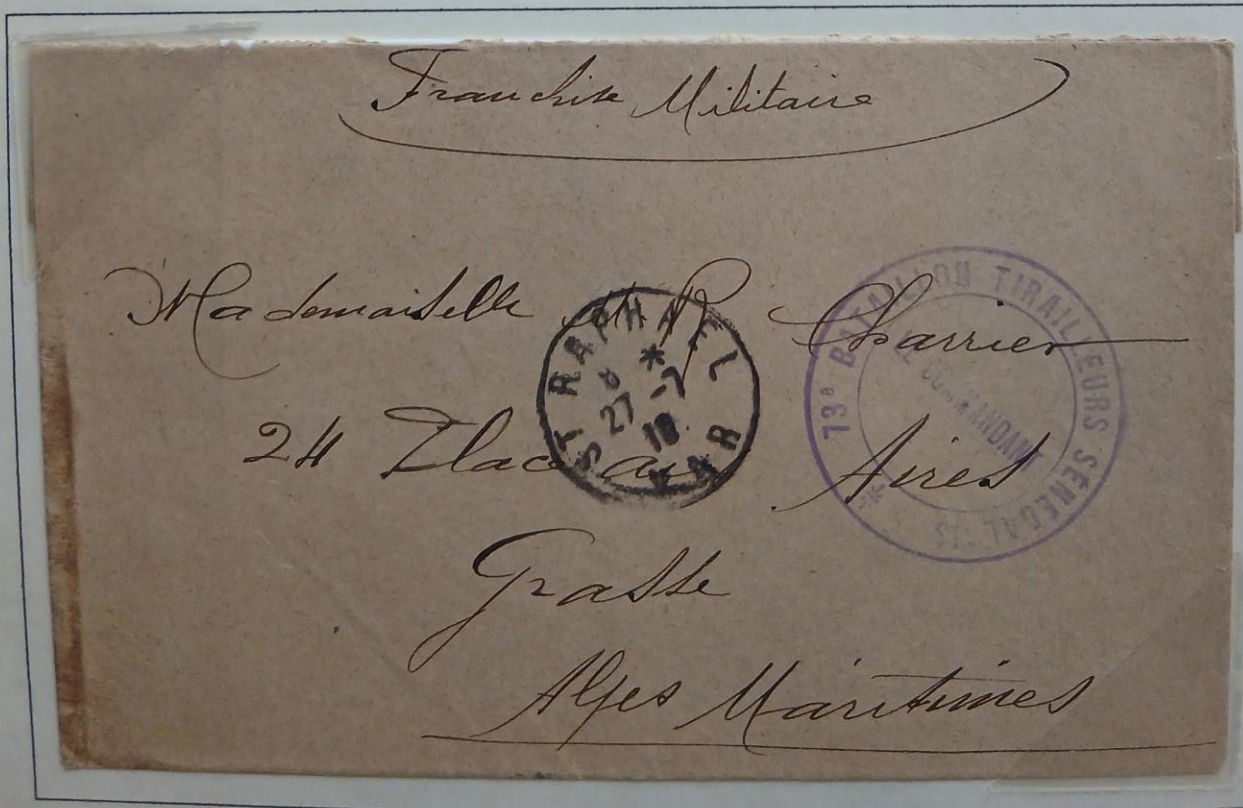 Franchise Militaire
Mademoiselle M R Charrier
24 Place aux Aires
Grasse
Alpes Maritimes
ST RAPHAEL
*
27 -7
18
VAR
73e BATAILLON TIRAILLEURS SENEGALAIS *
LE COMMANDANT